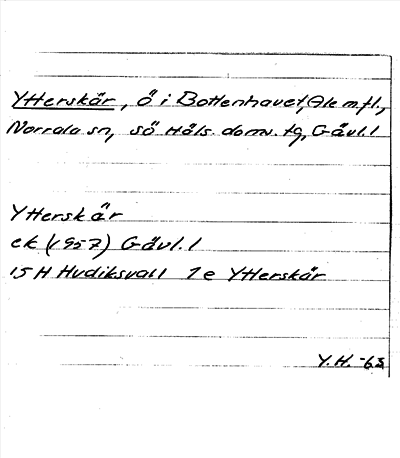 Ytterskär, ö i Bottenhavet, Ale m.fl.,
Norrala sn, sö Häls. domv. tg, Gävl. l
Ytterskär
ek (1957) Gävl. l
15 H Hudiksvall 1e Ytterskär
Y.H. -63